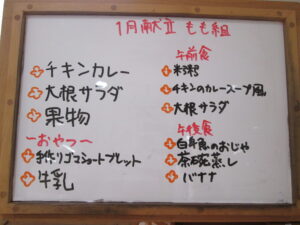 1月献立 もも組
チキンカレー
大根サラダ
果物
〜おやつ〜
手作りゴマショートブレット
牛乳
午前食
米粥
チキンのカレースープ風
大根サラダ
午後食
白身魚のおじや
茶碗蒸し
バナナ